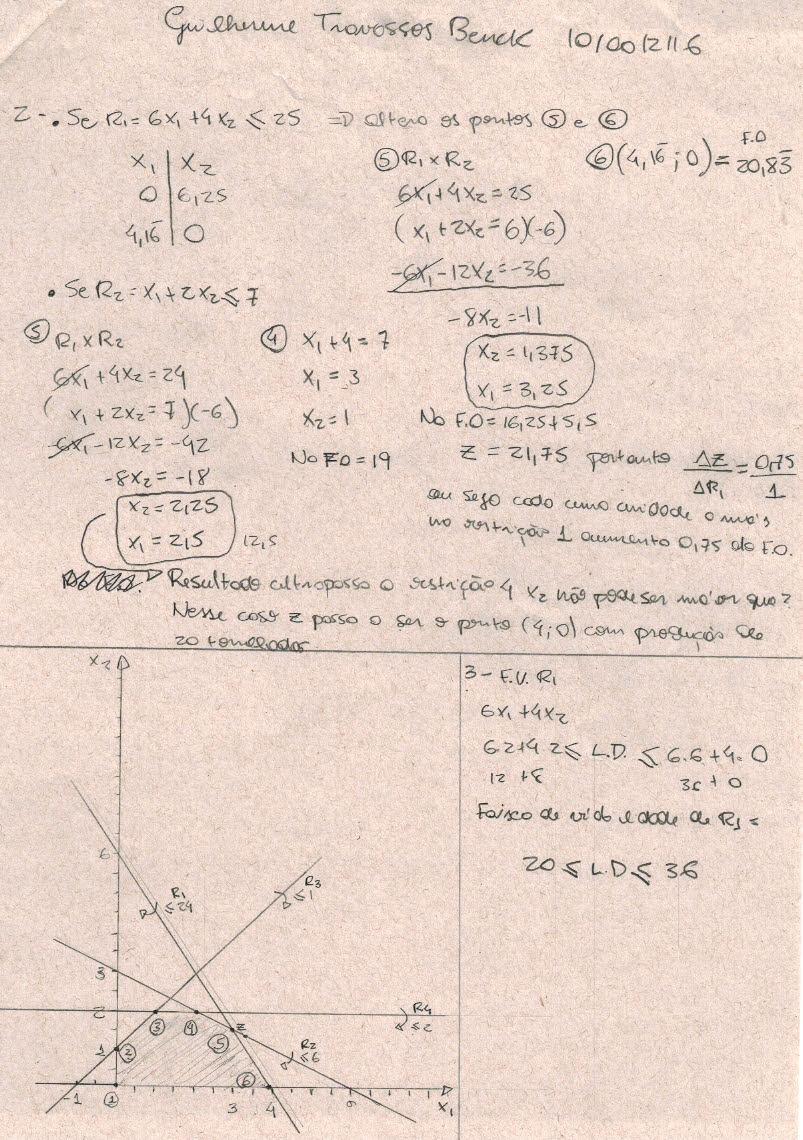 Guilherme Travassos Benck 10/0012116
2-. Se R₁ = 6x₁ + 4x₂ ≤ 25 => altera os pontos ⑤ e ⑥
x₁ | x₂
0 | 6,25
4,16̄ | 0
⑤ R₁ x R₂
6x₁ + 4x₂ = 25
(x₁ + 2x₂ = 6)(-6)
-6x₁ - 12x₂ = -36
-8x₂ = -11
x₂ = 1,375
x₁ = 3,25
No F.O = 16,25 + 5,5
Z = 21,75 portanto ΔZ/ΔR₁ = 0,75/1
ou seja cada uma unidade a mais
na restrição 1 aumenta 0,75 da F.O.
F.O
⑥ (4,16̄ ; 0) = 20,83̄
• Se R₂ = x₁ + 2x₂ ≤ 7
⑤ R₁ x R₂
6x₁ + 4x₂ = 24
(x₁ + 2x₂ = 7)(-6)
-6x₁ - 12x₂ = -42
-8x₂ = -18
x₂ = 2,25
x₁ = 2,5
12,5
④ x₁ + 4 = 7
x₁ = 3
x₂ = 1
No FO = 19
Resultado ultrapassa a restrição 4 x₂ não pode ser maior que 2
Nesse caso Z passa a ser o ponto (4;0) com produção de
20 toneladas
x₂
6
3
2
1
-1
3
4
6
x₁
R₁
≤ 24
R₃
≤ 1
R₄
≤ 2
R₂
≤ 6
①
②
③
④
⑤
Z
⑥
3 - F.V. R₁
6x₁ + 4x₂
6.2 + 4.2 ≤ L.D. ≤ 6.6 + 4.0
12 + 8
36 + 0
Faixa de validade de R₁ =
20 ≤ L.D ≤ 36